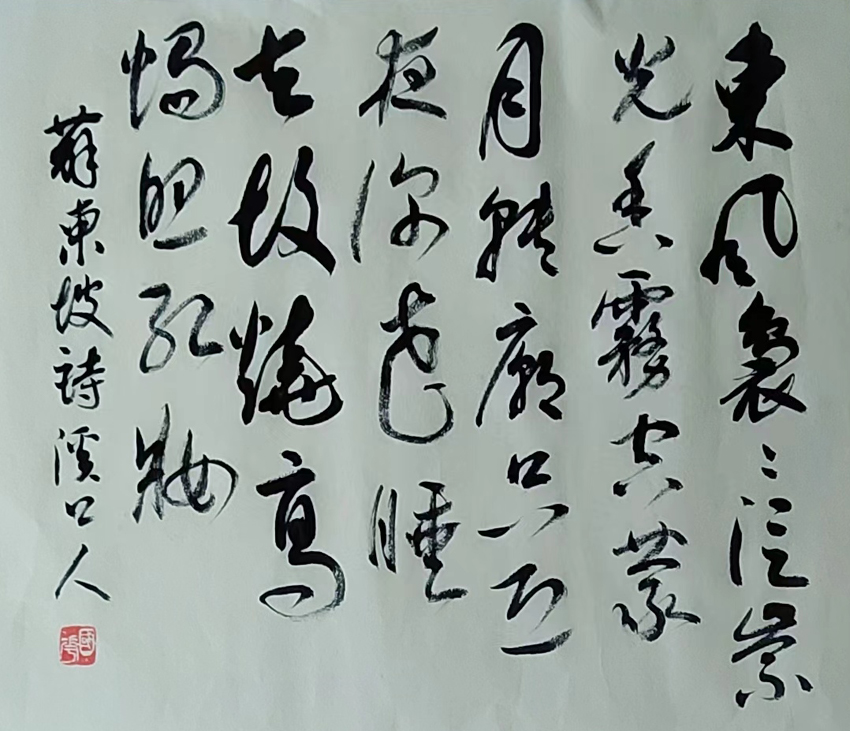 東風裊〻泛崇
光香霧空蒙
月轉廊只恐
夜深花睡
去故燒高
燭照紅妝
蘇東坡詩溪口人